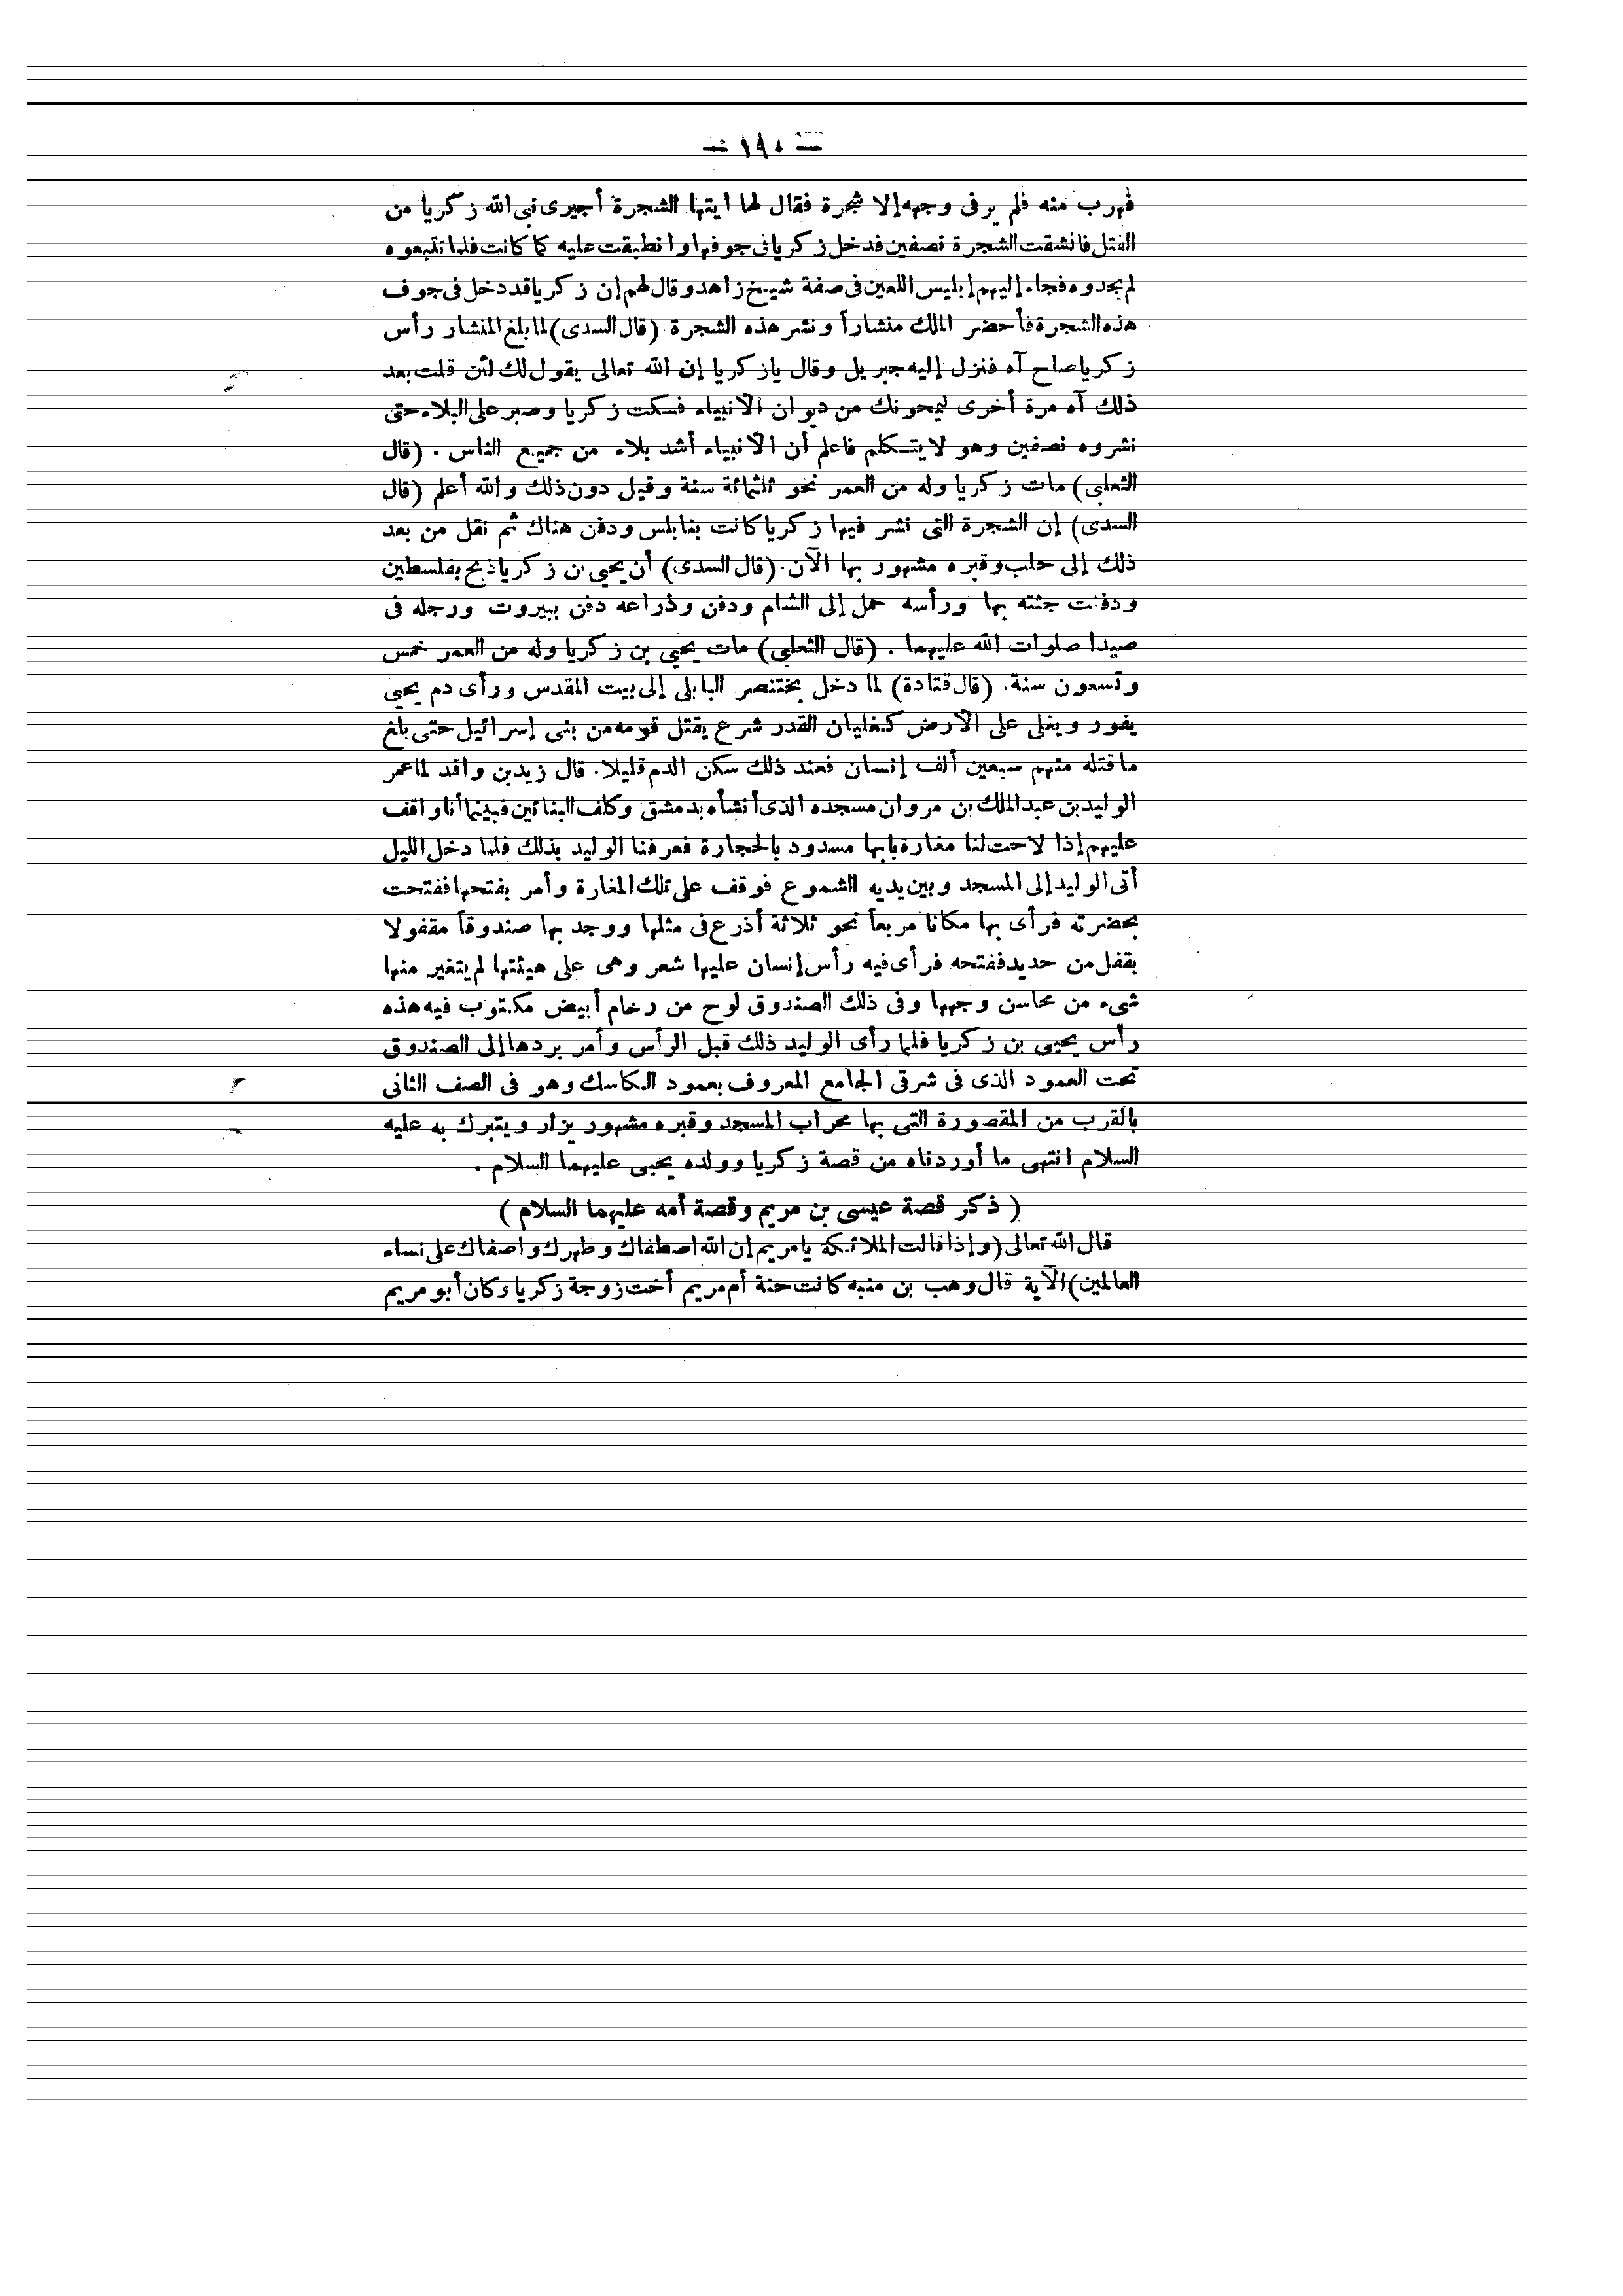 — ١٩٠ —
فهرب منه فلم ير فى وجهه إلا شجرة فقال لها ايتها الشجرة أجيرى نبى الله زكريا من
القتل فانشقت الشجرة نصفين فدخل زكريا فى جوفها وانطبقت عليه كما كانت فلما تتبعوه
لم يجدوه فجاء إليهم إبليس اللعين فى صفة شيخ زاهد وقال لهم إن زكريا قد دخل فى جوف
هذه الشجرة فأحضر الملك منشاراً ونشر هذه الشجرة (قال السدى) لما بلغ المنشار رأس
زكريا صاح آه فنزل إليه جبريل وقال يا زكريا إن الله تعالى يقول لك لئن قلت بعد
ذلك آه مرة أخرى ليمحونك من ديوان الأنبياء فسكت زكريا وصبر على البلاء حتى
نشروه نصفين وهو لا يتكلم فاعلم أن الأنبياء أشد بلاء من جميع الناس . (قال
الثعلبى) مات زكريا وله من العمر نحو ثلثمائة سنة وقيل دون ذلك والله أعلم (قال
السدى) إن الشجرة التى نشر فيها زكريا كانت بنابلس ودفن هناك ثم نقل من بعد
ذلك إلى حلب وقبره مشهور بها الآن. (قال السدى) أن يحيى بن زكريا ذبح بفلسطين
ودفنت جثته بها ورأسه حمل إلى الشام ودفن وذراعه دفن ببيروت ورجله فى
صيدا صلوات الله عليهما . (قال الثعلبى) مات يحيى بن زكريا وله من العمر خمس
وتسعون سنة. (قال قتادة) لما دخل بختنصر البابلى إلى بيت المقدس ورأى دم يحيى
يفور ويغلى على الأرض كغليان القدر شرع يقتل قومه من بنى إسرائيل حتى بلغ
ما قتله منهم سبعين ألف إنسان فعند ذلك سكن الدم قليلا. قال زيد بن واقد لما عمر
الوليد بن عبد الملك بن مروان مسجده الذى أنشأه بدمشق وكلف البنائين فبينما أنا واقف
عليهم إذا لاحت لنا مغارة بابها مسدود بالحجارة فعرفنا الوليد بذلك فلما دخل الليل
أتى الوليد إلى المسجد وبين يديه الشموع فوقف على تلك المغارة وأمر بفتحها ففتحت
بحضرته فرأى بها مكانا مربعاً نحو ثلاثة أذرع فى مثلها ووجد بها صندوقاً مقفولا
بقفل من حديد ففتحه فرأى فيه رأس إنسان عليها شعر وهى على هيئتها لم يتغير منها
شىء من محاسن وجهها وفى ذلك الصندوق لوح من رخام أبيض مكتوب فيه هذه
رأس يحيى بن زكريا فلما رأى الوليد ذلك قبل الرأس وأمر بردها إلى الصندوق
تحت العمود الذى فى شرقى الجامع المعروف بعمود السكاسك وهو فى الصف الثانى
بالقرب من المقصورة التى بها محراب المسجد وقبره مشهور يزار ويتبرك به عليه
السلام انتهى ما أوردناه من قصة زكريا وولده يحيى عليهما السلام .
( ذكر قصة عيسى بن مريم وقصة أمه عليهما السلام )
قال الله تعالى (وإذ قالت الملائكة يا مريم إن الله اصطفاك وطهرك واصفاك على نساء
العالمين) الآية قال وهب بن منبه كانت حنة أم مريم أخت زوجة زكريا وكان أبو مريم